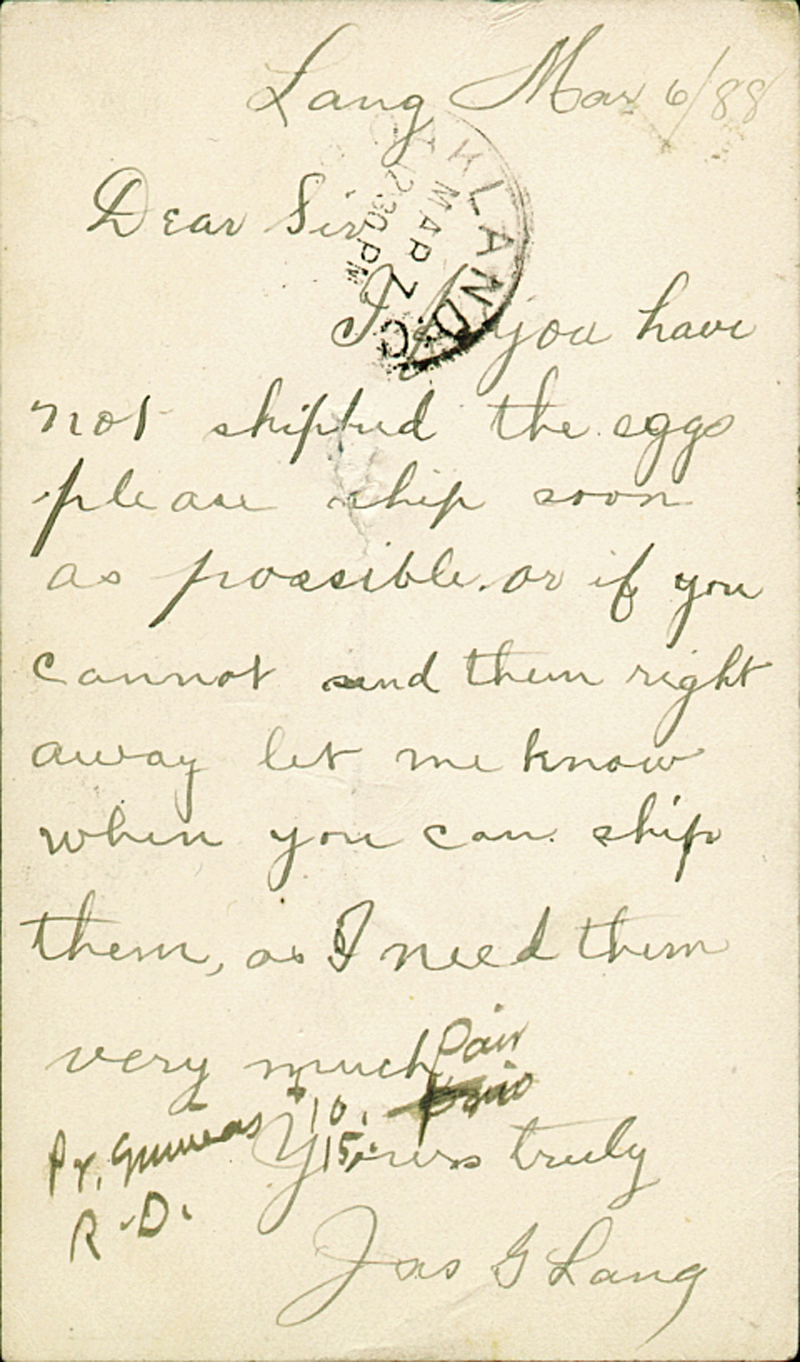 Lang Mar 6/88
OAKLAND
MAR 7
230 PM
Dear Sir
If you have
not shipped the eggs
please ship soon
as possible or if you
cannot send them right
away let me know
when you can ship
them, as I need them
very much
Pair
Trio
Pr. Guineas $10.
15.
R.D.
Yours truly
Jas G Lang